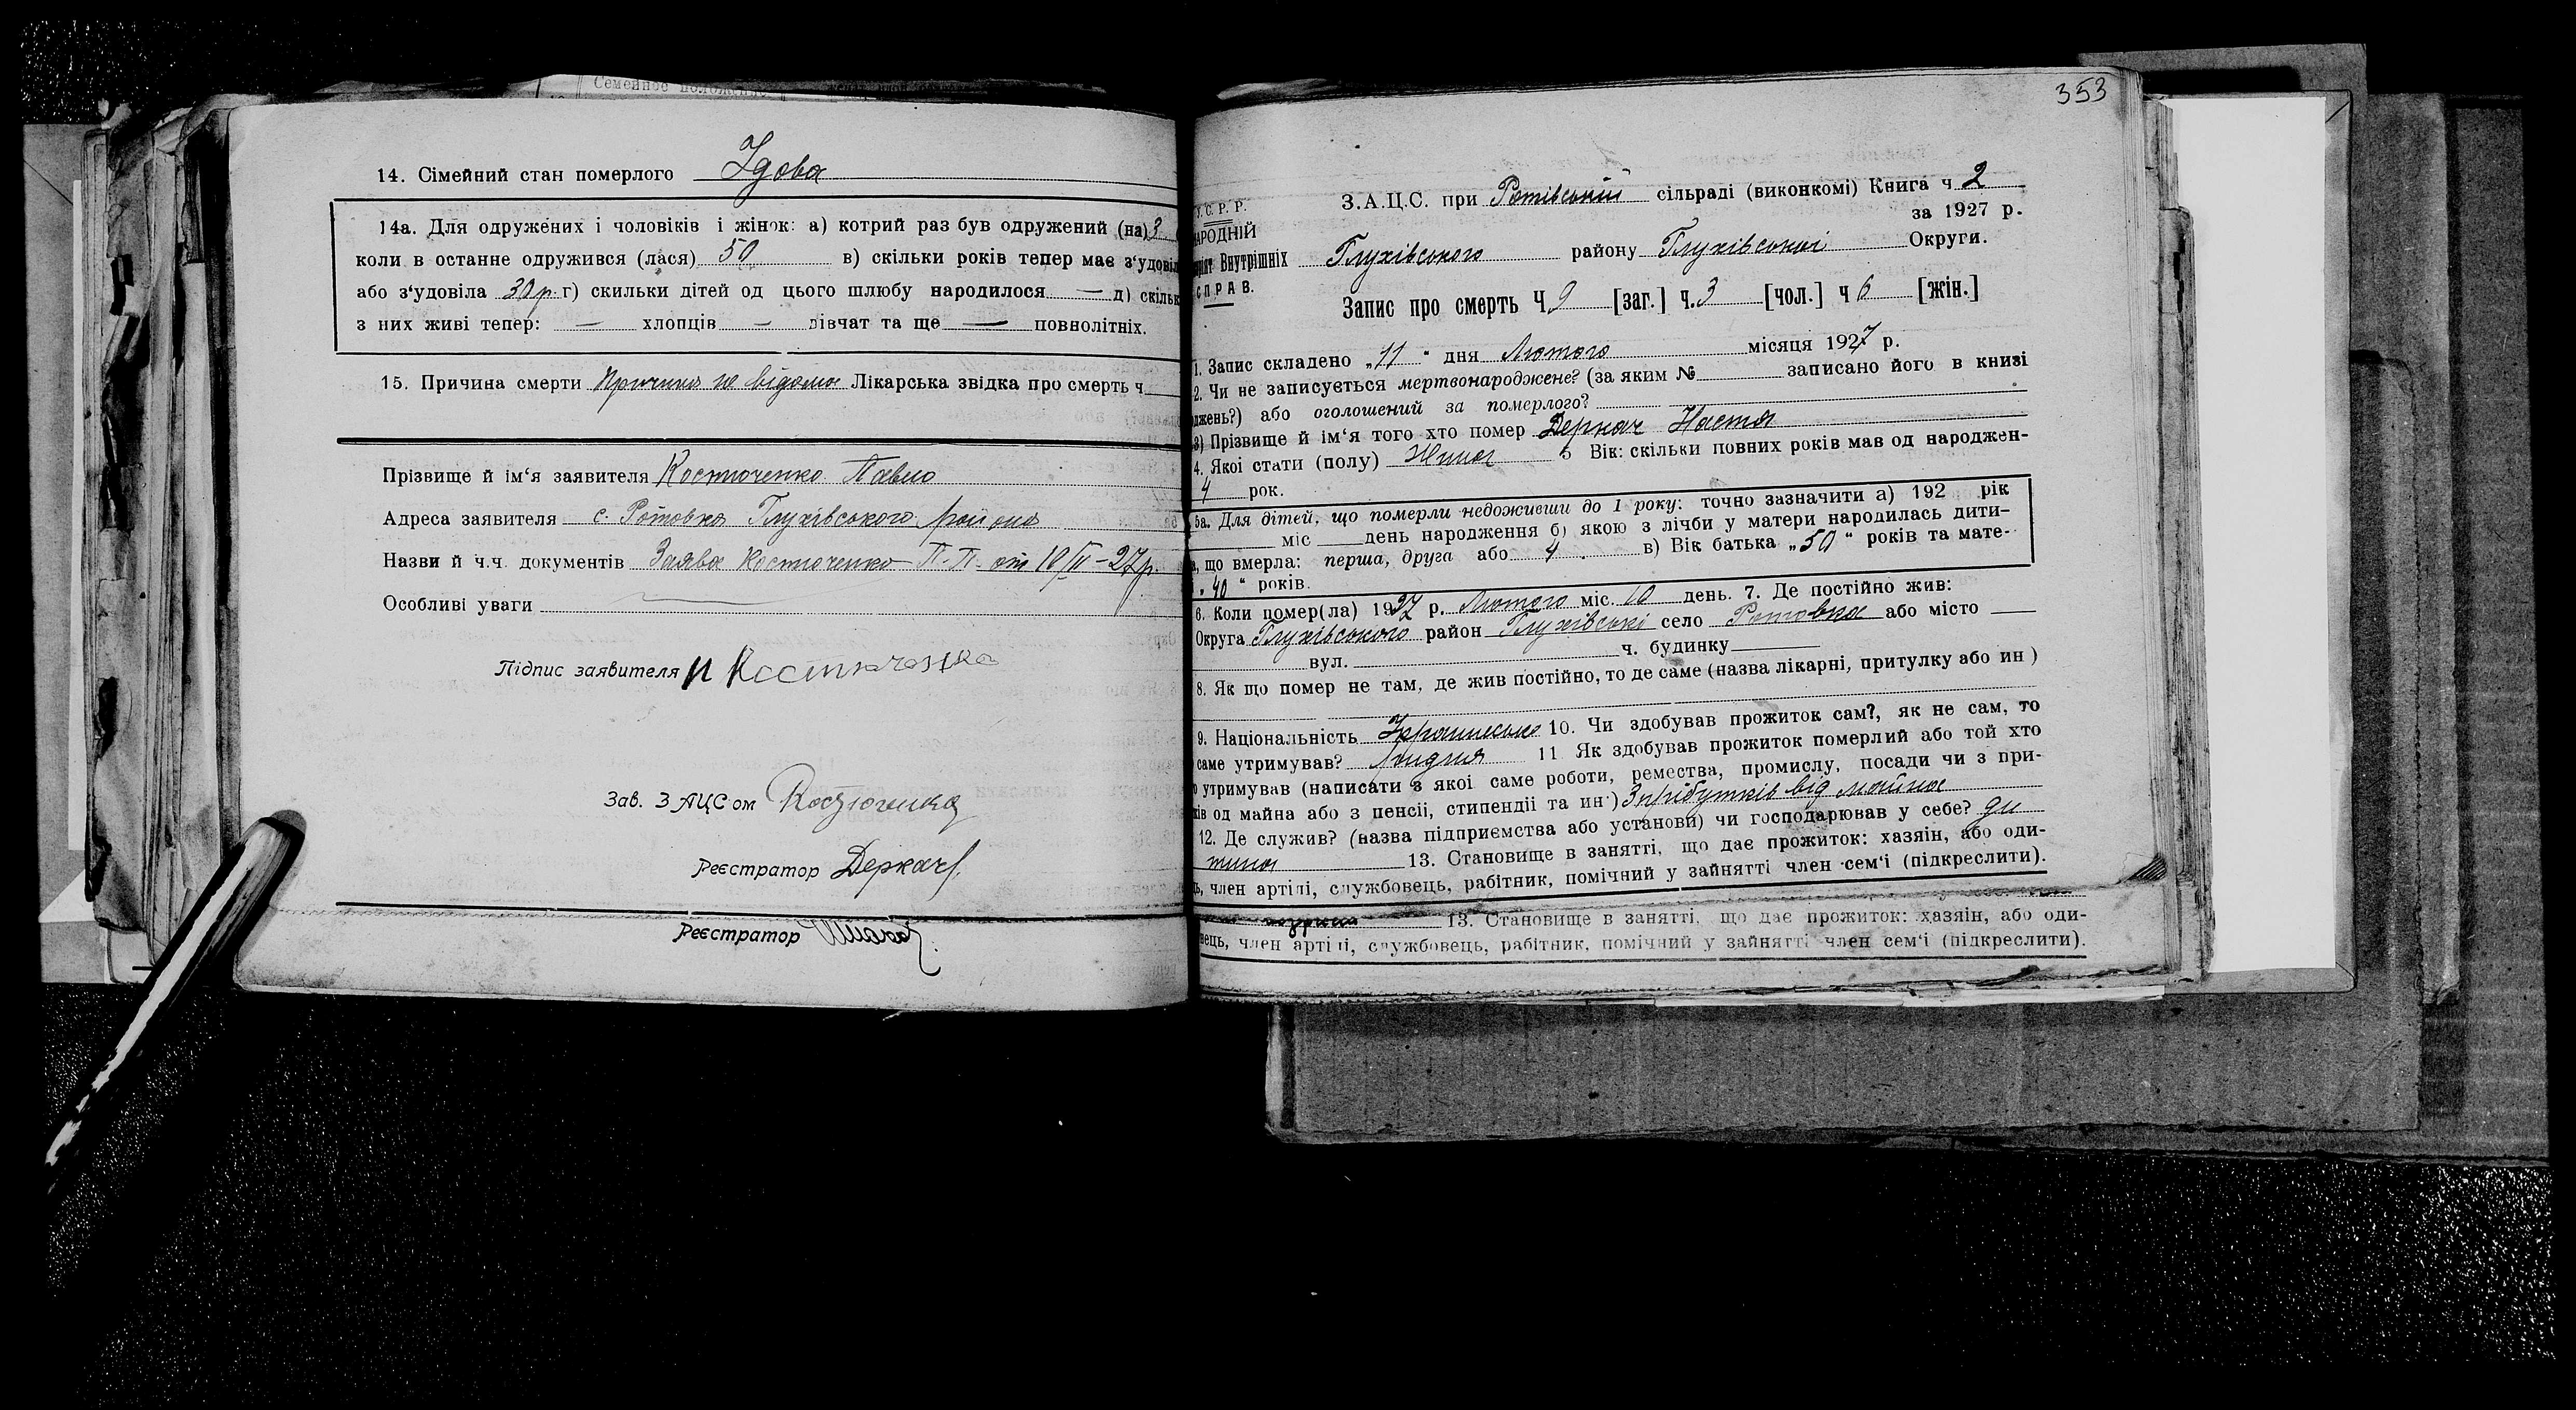 Семейное положение
14. Сімейний стан померлого Удова
14а. Для одружених і чоловіків і жінок: а) котрий раз був одружений (на) 3
коли в останне одружився (лася) 50 в) скільки років тепер має з'удовіл
або з'удовіла 30 р. г) скильки дітей од цього шлюбу народилося — д) скільк
з них живі тепер: — хлопців — дівчат та ще — повнолітніх.
15. Причина смерти Причина не відома Лікарська звідка про смерть ч.
Прізвище й ім'я заявителя Костюченко Павло
Адреса заявителя с. Ротовка Глухівського района
Назви й ч.ч. документів Заява Костюченко П. П. от 10/II–27р.
Особливі уваги
Підпис заявителя П Костюченко
Зав. ЗАЦСом Костюченко
Реєстратор Деркач
Реєстратор
353
У.С.Р.Р.
НАРОДНІЙ
Внутрішніх
СПРАВ.
З.А.Ц.С. при Ротівській сільраді (виконкомі) Книга ч 2
за 1927 р.
Глухівського району Глухівської Округи.
Запис про смерть Ч 9 [заг.] ч. 3 [чол.] ч 6 [жін.]
1. Запис складено „11" дня Лютого місяця 1927 р.
2. Чи не записується мертвонароджене? (за яким № записано його в книзі
джень?) або оголошений за померлого?
3) Прізвище й ім'я того хто помер Деркач Настя
4. Якоі стати (полу) Жіноч 5 Вік: скільки повних років мав од народжен-
4 рок.
5а. Для дітей, що померли недоживши до 1 року: точно зазначити а) 192 рік
міс день народження б) якою з лічби у матери народилась дити-
а, що вмерла: перша, друга або 4 в) Вік батька „50" років та мате-
„40" років.
6. Коли помер(ла) 1927 р. Лютого міс. 10 день. 7. Де постійно жив:
Округа Глухівського район Глухівські село Ротовка або місто —
вул. ч. будинку
8. Як що помер не там, де жив постійно, то де саме (назва лікарні, притулку або ин )
9. Національність Українсько 10. Чи здобував прожиток сам?, як не сам, то
саме утримував? Родня 11 Як здобував прожиток померлий або той хто
о утримував (написати з якоі саме роботи, ремества, промислу, посади чи з при-
ків од майна або з пенсіі, стипендіі та ин.) З прібутків від майна
12. Де служив? (назва підприємства або установи) чи господарював у себе? ди
тина 13. Становище в занятті, що дає прожиток: хазяін, або оди-
ь, член артілі, службовець, рабітник, помічний у зайнятті член сем'і (підкреслити).
13. Становище в занятті, що дає прожиток: хазяін, або оди-
вець, член артілі, службовець, рабітник, помічний у зайнятті член сем'і (підкреслити).